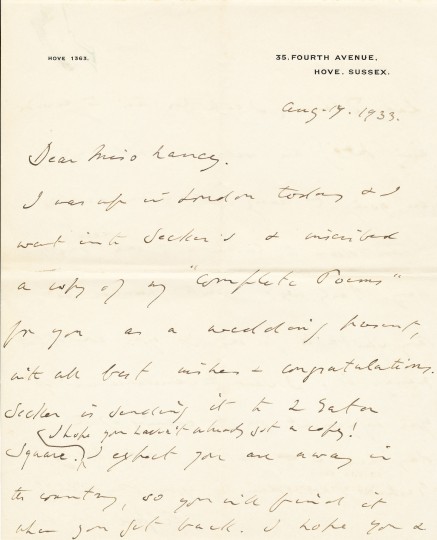 HOVE 1563.
35. FOURTH AVENUE,
HOVE. SUSSEX.
Aug. 17. 1933.
Dear Miss Nancy.
I was up in London today & I
went into Secker's & inscribed
a copy of my "Complete Poems"
for you as a wedding present,
with all best wishes & congratulations.
Secker is sending it to 2 Eaton
I hope you haven't already got a copy!
Square. I expect you are away in
the country, so you will find it
when you get back. I hope you &